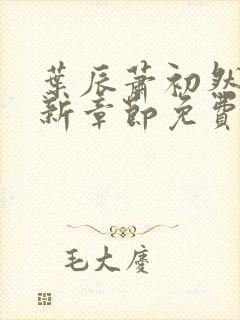 葉辰蕭初然
新章節免費
毛大慶